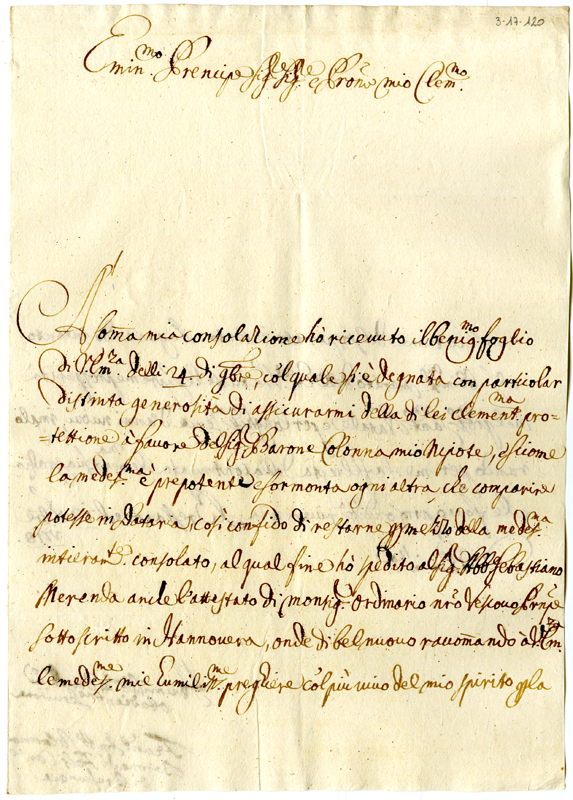 3-17-120
Emin.mo Prencipe Sig.re Sig.re e Pron.e mio Clem.mo
A somma mia consolazione hò riceuuto il benig.mo foglio
di V. Em.za delli 24. di 9bre, col quale si è degnata con particolar
distinta generosità di assicurarmi della di lei clement.ma pro-
-tettione à fauore del Sig.r Barone Colonna mio Nipote, e sicome
la medes.ma è prepotente e sormonta ogni altra, che comparire
potesse in Dataria, così confido di restarne p mezzo della medes.ma
intieram.te consolato, al qual fine hò spedito al Sig.r Abb. Sebastiano
Merenda anche l'attestato di Monsig.r Ordinario nr̃o Vescouo
sottoscritto in Hannouera, onde di bel nuouo raccomando à V. Em.za
le medes.me mie humiliss.me preghiere col più uiuo del mio spirito p la